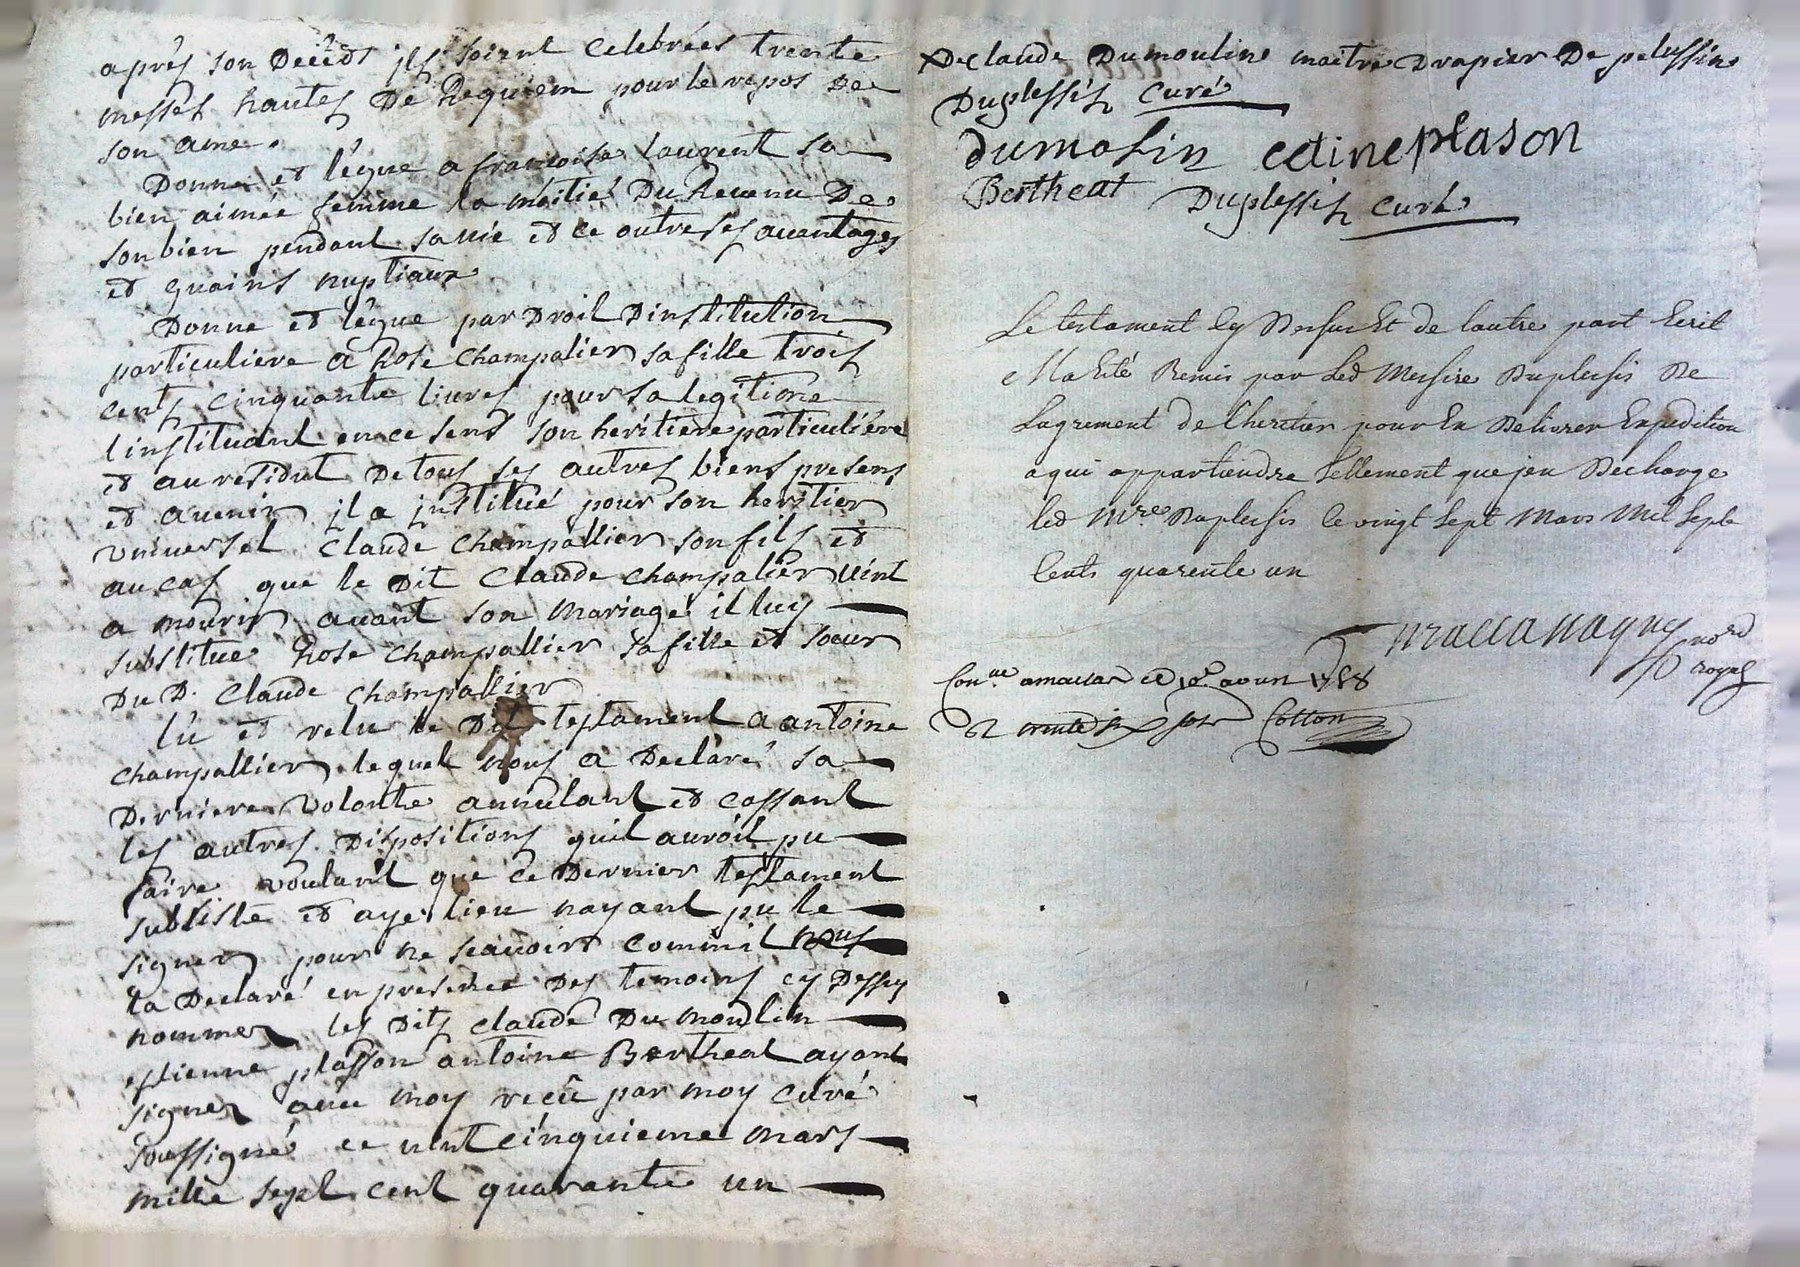 après son Décéds ils soient Celebrées trente
messes hautes De Requiem pour le repos De
son ame.
Donne et lègue a francoise laurent sa
bien aimée femme la moitié Du Revenu De
son bien pendant sa vie et ce outre ses avantages
et guains nuptiaux
Donne et lègue par Droit Dinstitution
particuliere a Rose Champalier sa fille trois
cents cinquante livres pour sa legitime
linstituant en ce sens son heritiere particuliére
et au residut De tous ses autres biens presens
et avenir jl a justitué pour son heritier
universel Claude Champallier son fils et
au cas que le Dit Claude Champalier vint
a mourir avant son Mariage il luy
substitue Rose Champallier sa fille et soeur
Du D. Claude Champallier
lû et relu le Dit testament a antoine
Champallier lequel nous a Declaré sa
Derniere Volonté annulant et cassant
les autres Dispositions quil auroit pu
faire voulant que ce Dernier testament
subsiste et aye lieu nayant pu le
signer pour ne scavoir comme il nous
la Declaré en presence Des temoins cy Dessus
nommez les Dits Claude Du moulin
estienne plasson antoine Bertheat ayant
signez avec moy recû par moy curé
soussigné ce vint cinquieme mars
mille sept cent quarante un
De Claude Dumouline maitre Drapier De pelussin
Duplessis Curé
dumolin etine plason
Bertheat Duplessis Curé
Le testament Cy Dessus Et de lautre part Ecrit
Ma Eté Remis par Led Messire Duplessis De
Lagrement de lheritier pour En Delivrer Expedition
a qui appartiendra Tellement que jen Decharge
led Mre Duplessis Ce vingt Sept Mars Mil Sept
Cents quarente un
no.rd
royal
Con.lle a ce 10e avril
Cotton